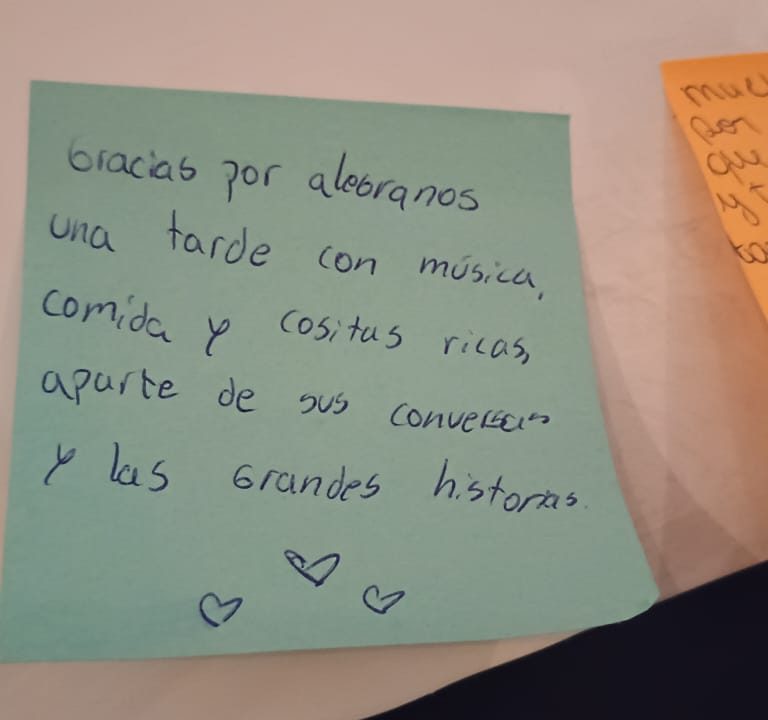 Gracias por alegranos
una tarde con música,
comida y cositas ricas,
aparte de sus conversas
y las Grandes historias.
muc
por
qu
y t